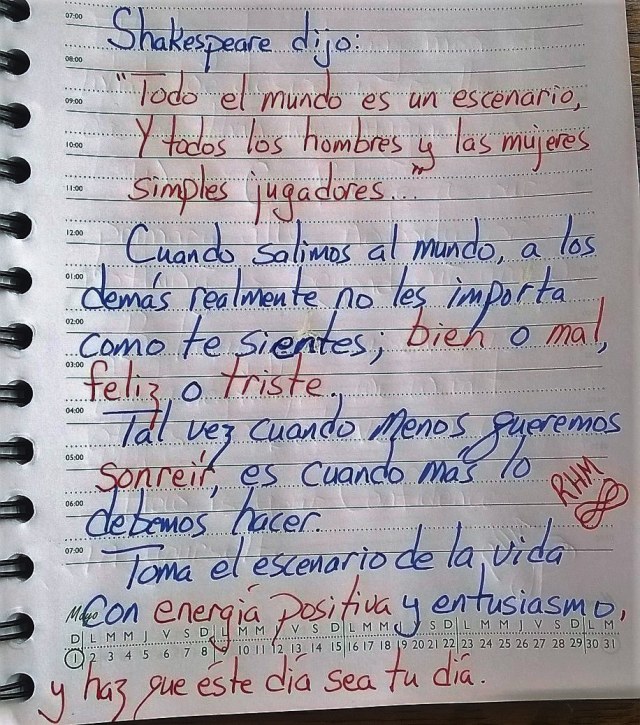 07:00
Shakespeare dijo:
08:00
"Todo el mundo es un escenario,
09:00
Y todos los hombres y las mujeres
10:00
simples jugadores..."
11:00
12:00
Cuando salimos al mundo, a los
01:00
demás realmente no les importa
02:00
como te sientes; bien o mal,
03:00
feliz o triste.
04:00
Tal vez cuando menos queremos
05:00
sonreír, es cuando más lo
RHM
06:00
debemos hacer.
07:00
Toma el escenario de la vida
Mayo
con energía positiva y entusiasmo,
D L M M J V S D L M M J V S D L M M J V S D L M M J V S D L M
1 2 3 4 5 6 7 8 9 10 11 12 13 14 15 16 17 18 19 20 21 22 23 24 25 26 27 28 29 30 31
y haz que éste día sea tu día.